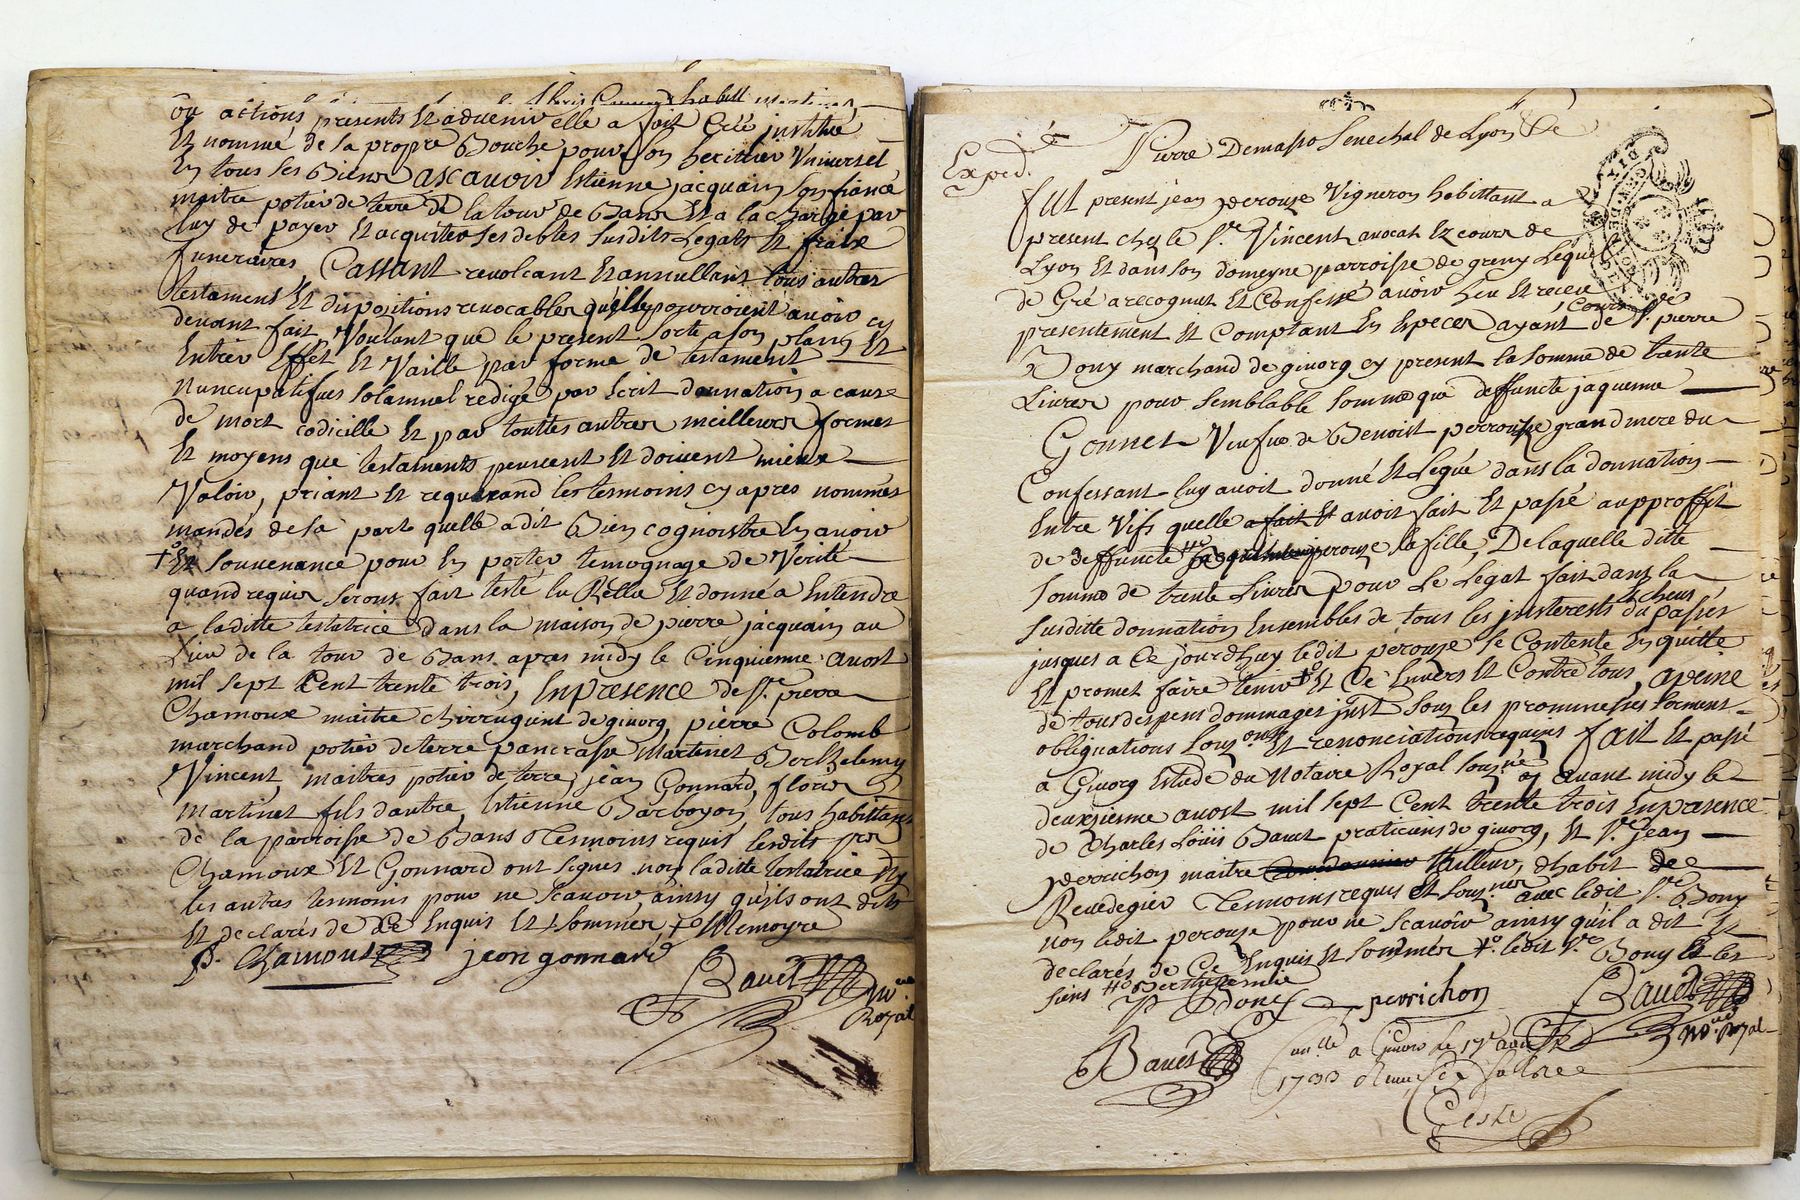 ou actions presents Et advenir elle a fait Creé justitué
Et nommé de sa propre Bouche pour son heritier Vniversel
En tous ses Biens ascavoir Estienne jacquain son fiancé
maitre potier de terre de la tour de Bans Et a la charge par
luy de payer Et acquiter ses debtes susdits Legats Et fraix
funeraires, Cassant revolcant Et annullant tous autres
testament Et dispositions revocables quelle pourroient avoir
devant fait Voulant que le present sorte a son plain Et
Entier Effet Et Vaille par forme de testament Et
Nuncupatif solamnel redigé par Ecrit donnation a cause
de mort codicille Et par touttes autres meilleures formes
Et moyens que testaments peuvent Et doivent mieux
Valoir, priant Et requerand les tesmoins cy apres nommés
mandés de sa part quelle a dit Bien cognoistre En avoir
Et souvenance pour En porter temognage de Verité
quand requis serons fait testé lu Rellu Et donné a Entendre
a laditte testatrice dans la maison de pierre jacquain au
Lieu de la tour de Bans apres midy le Cinquienme avost
mil sept Cent trente trois, En presence de Sr. pierre
Chamoux maitre chirrugient de givorg, pierre Colomb
marchand potier de terre pancrasse Martinet Berthelemy
Vincent, maitres potier de terre, jean Gonnard, floris
Martinet fils dautre, Estienne Barboyon, tous habittans
de la parroisse de Bans Tesmoins requis lesdits srs
Chamoux Et Gonnard ont signés non laditte testatrice Ny
les autres tesmoins pour ne scavoir ainsy quils ont dits
Et declarés de Ce Enquis Et sommer Memoyre
P. Chamoux jean gonnard
Bauet
Nre.
Royal
Exped.
Pierre Demasso Senechal de Lyon
GEN. DE LYON
fut present jean perouze Vigneron habittant a
present ches le Sr. Vincent avocat Ez cours de
Lyon Et dans son domeyne parroisse de greny Lequel
de Gré a recognut Et Confessé avoir heu Et receu
presentement Et Comptant En Especes ayant Cours de Sr. pierre
Bony marchand de givorg cy present la somme de trente
Livres pour semblable somme que deffuncte jaquenne
Gonnet Veufve de Benoist perrouse grand mere du
Confessant luy avoit donné Et Legüé dans la donnation
Entre Vifs quelle a fait Et avoit fait Et passé au proffit
de deffuncte perouze sa fille, De laquelle ditte
somme de trente Livres pour Le Legat fait dans la
susditte donnation Ensembles de tous les justerests Echeus du passés
jusques a Ce jourdhuy ledit perouze se Contente En quitte
Et promet faire tenir Et Ce Envers Et Contre tous, apeine
de tous despens dommages just sous les prommesses serment
obliguations sous.ons Et renonciations requises fait Et passé
a Givorg Estude du Notaire Royal sousné. avant midy le
deuxsienme avost mil sept Cent trente trois En presence
de Charles Loüis Bauet praticiens de givorg, Et Sr. Jean
perrichon maitre tailleur, dhabit de
Revedegier Tesmoins requis Et sousnes avec ledit Sr. Bony
non ledit perouze pour ne Scavoir ainsy quil a dit Et
declarés de Ce Enquis Et sommer ledit Sr. Bony Et les
siens
P Bony perrichon
Bauet
Bauet
Nre. Royal
Conllé a Givors le 17e aoust
1733